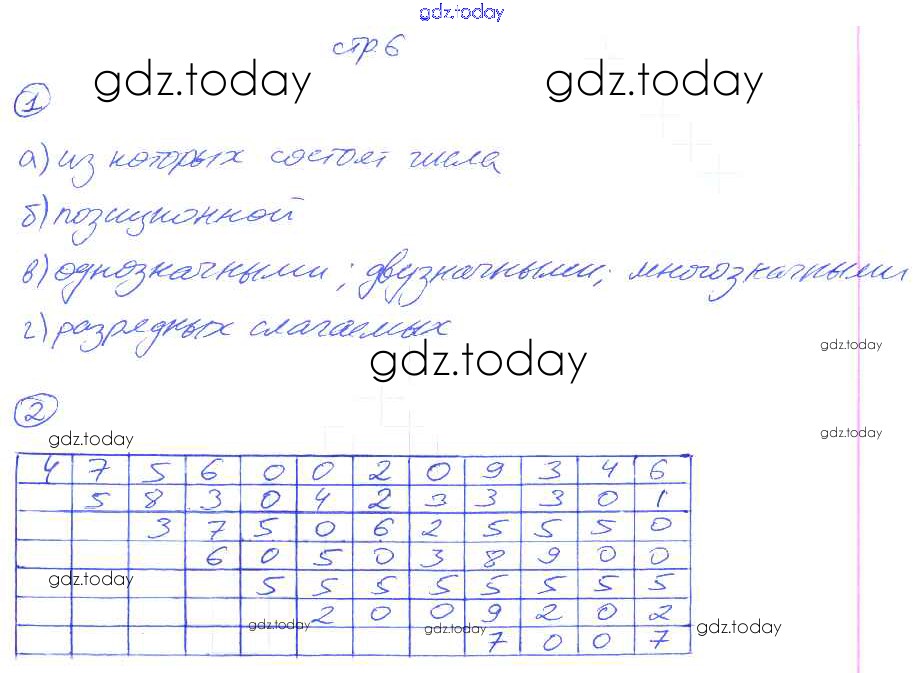 gdz.today
стр. 6
gdz.today gdz.today
1
а) из которых состоят числа
б) позиционной
в) однозначными; двузначными; многозначными
г) разрядных слагаемых
gdz.today
gdz.today
2
gdz.today
gdz.today
4 7 5 6 0 0 2 0 9 3 4 6
5 8 3 0 4 2 3 3 3 0 1
3 7 5 0 6 2 5 5 5 0
6 0 5 0 3 8 9 0 0
gdz.today
5 5 5 5 5 5 5 5
2 0 0 9 2 0 2
gdz.today gdz.today gdz.today
7 0 0 7